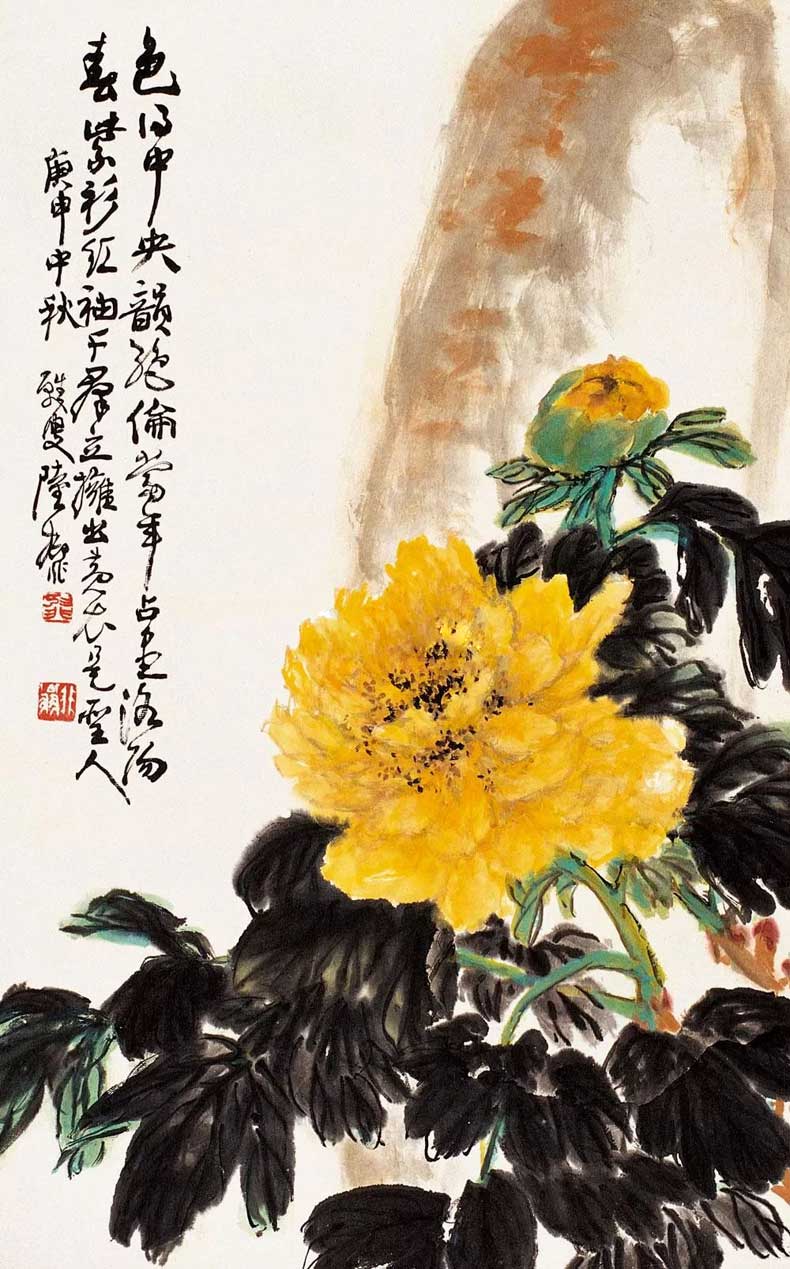 色得中央韻絕倫當年占盡洛陽
春紫衫紅袖千群立擁出黃衣是聖人
庚申中秋 叟陸抑非